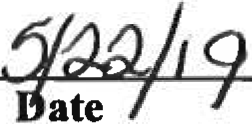 5/22/19
Date